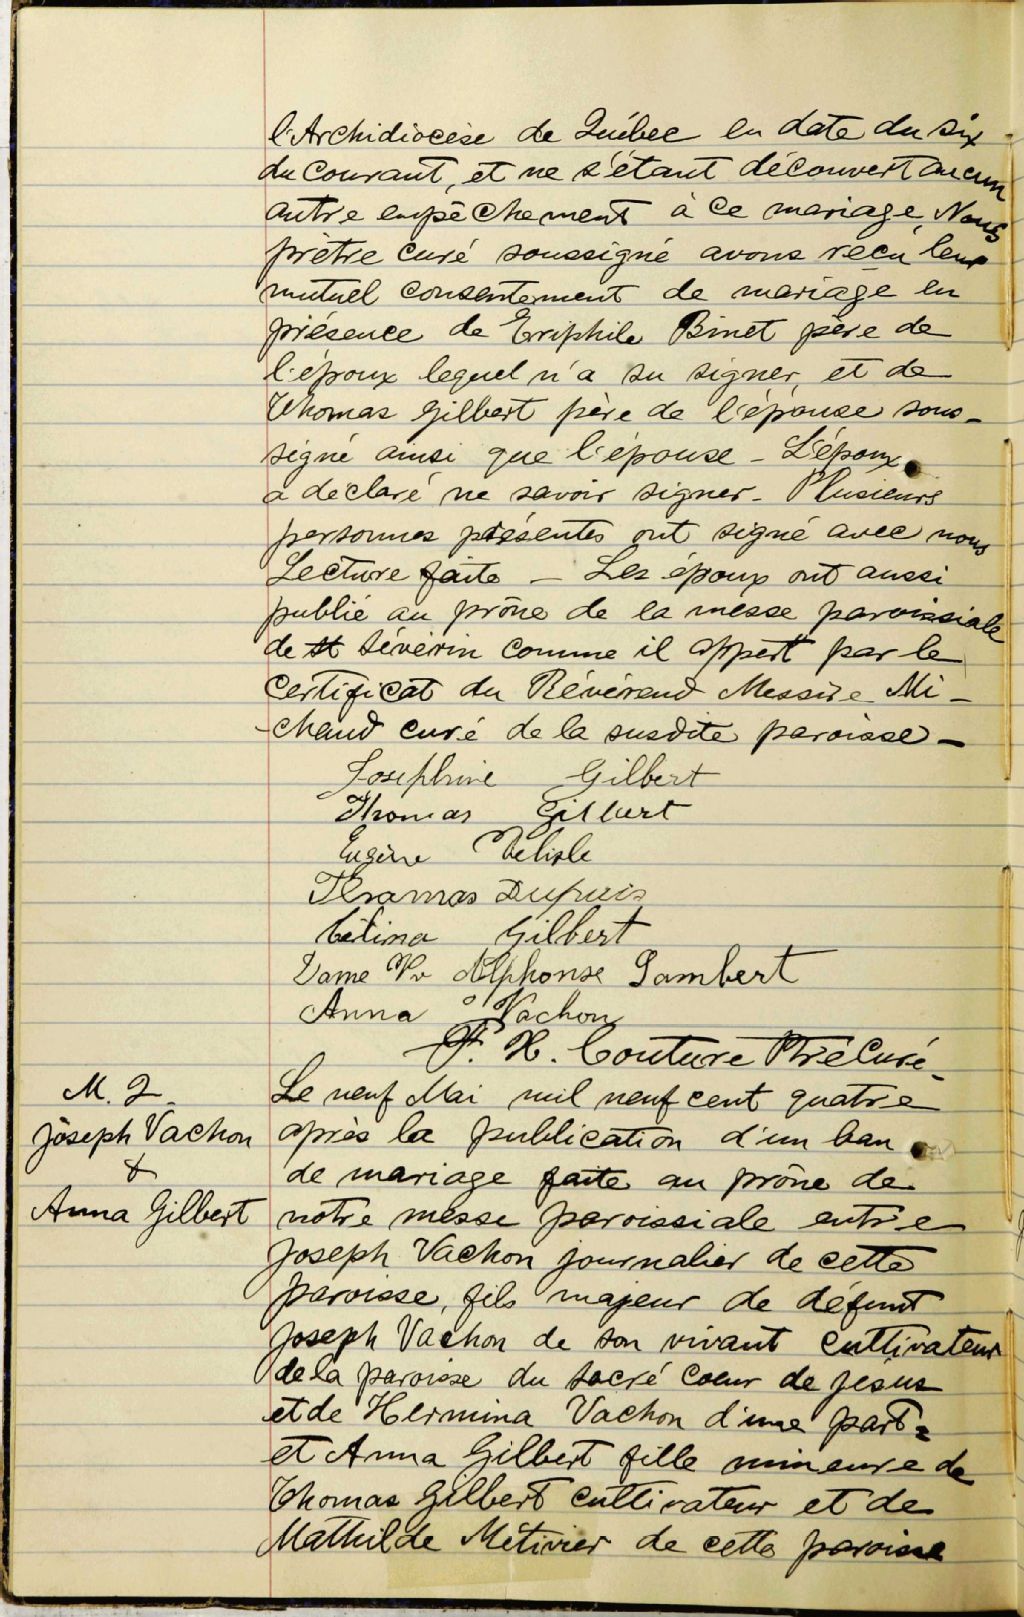 l'Archidiocèse de Québec en date du six
du courant, et ne s'étant découvert aucun
autre empêchement à ce mariage, Nous
prêtre curé soussigné avons reçu leur
mutuel consentement de mariage en
présence de Eriphile Binet père de
l'époux lequel n'a su signer, et de
Thomas Gilbert père de l'épouse sous-
signé ainsi que l'épouse - L'époux
a déclaré ne savoir signer - Plusieurs
personnes présentes ont signé avec nous
Lecture faite - Les époux ont aussi
publié au prône de la messe paroissiale
de St Sévérin comme il appert par le
certificat du Révérend Messire Mi-
-chaud curé de la susdite paroisse -
Josephine Gilbert
Thomas Gilbert
Eugène Delisle
Thomas Dupuis
Célina Gilbert
Dame Vv Alphonse Lambert
Anna Vachon
F. X. Couture Ptre Curé -
M. 2.
Joseph Vachon
&
Anna Gilbert
Le neuf Mai mil neuf cent quatre
après la publication d'un ban
de mariage faite au prône de
notre messe paroissiale entre
Joseph Vachon journalier de cette
paroisse, fils majeur de défunt
Joseph Vachon de son vivant cultivateur
de la paroisse du Sacré Coeur de Jésus
et de Hermina Vachon d'une part =
et Anna Gilbert fille mineure de
Thomas Gilbert cultivateur et de
Mathilde Métivier de cette paroisse